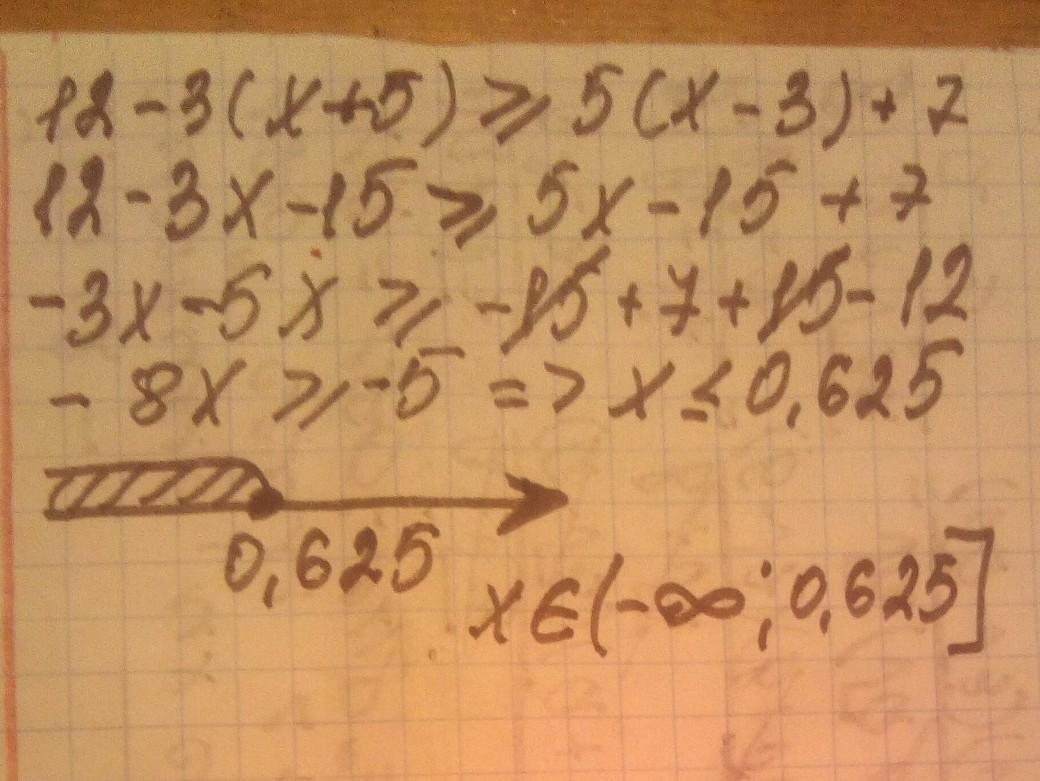 12-3(x+5)⩾5(x-3)+7
12-3x-15⩾5x-15+7
-3x-5x⩾-15+7+15-12
-8x⩾-5 => x≤0,625
0,625
x∈(-∞;0,625]